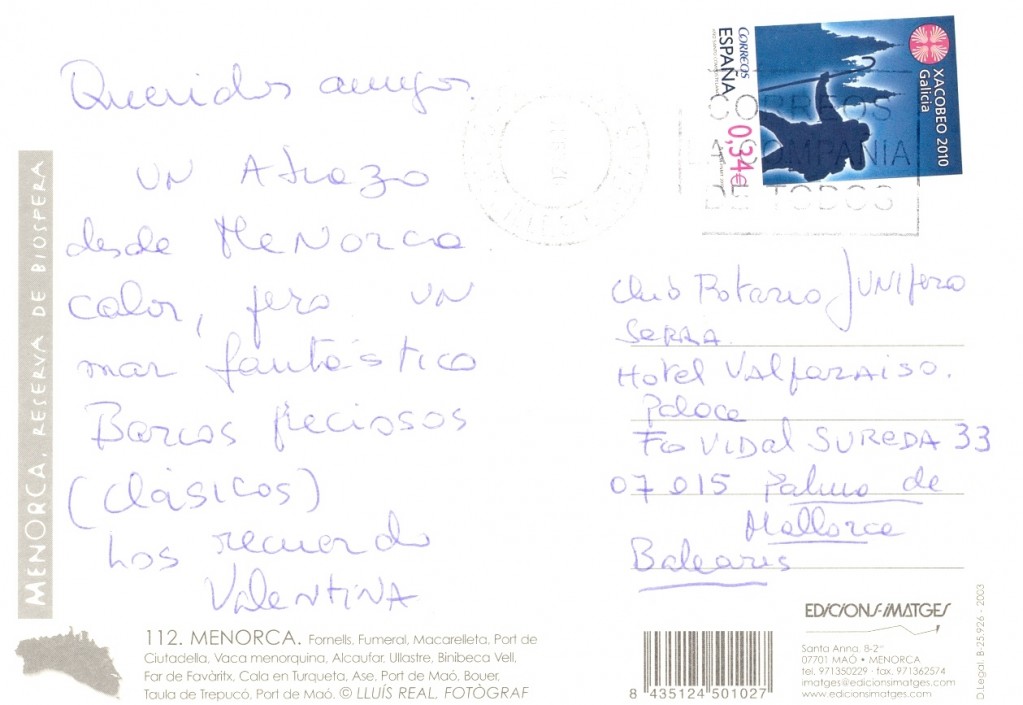 Queridos amigos
UN Abrazo
desde MeNorca
calor, pero UN
mar fantástico
Barcos preciosos
(clásicos)
Los recuerdo
ValentiNA
MENORCA, RESERVA DE BIOSPERA
112. MENORCA. Fornells, Fumeral, Macarelleta, Port de
Ciutadella, Vaca menorquina, Alcaufar, Ullastre, Binibeca Vell,
Far de Favàritx, Cala en Turqueta, Ase, Port de Maó, Bouer,
Taula de Trepucó, Port de Maó. © LLUÍS REAL. FOTÒGRAF
CORREOS
ESPAÑA
0,34€
XACOBEO 2010
Galicia
CORREOS
LA COMPAÑIA
DE TODOS
Club Rotario JUNIpero
SERRA
Hotel Valparaiso.
Palace
Fco VIDal SUREDA 33
07015 Palma de
Mallorca
Baleares
EDICIONS-IMATGES
Santa Anna, 8-2º
07701 MAÓ • MENORCA
tel. 971350229 - fax. 971362574
imatges@edicionsimatges.com
www.edicionsimatges.com
8 435124 501027
D.Legal. B-25.926 - 2003